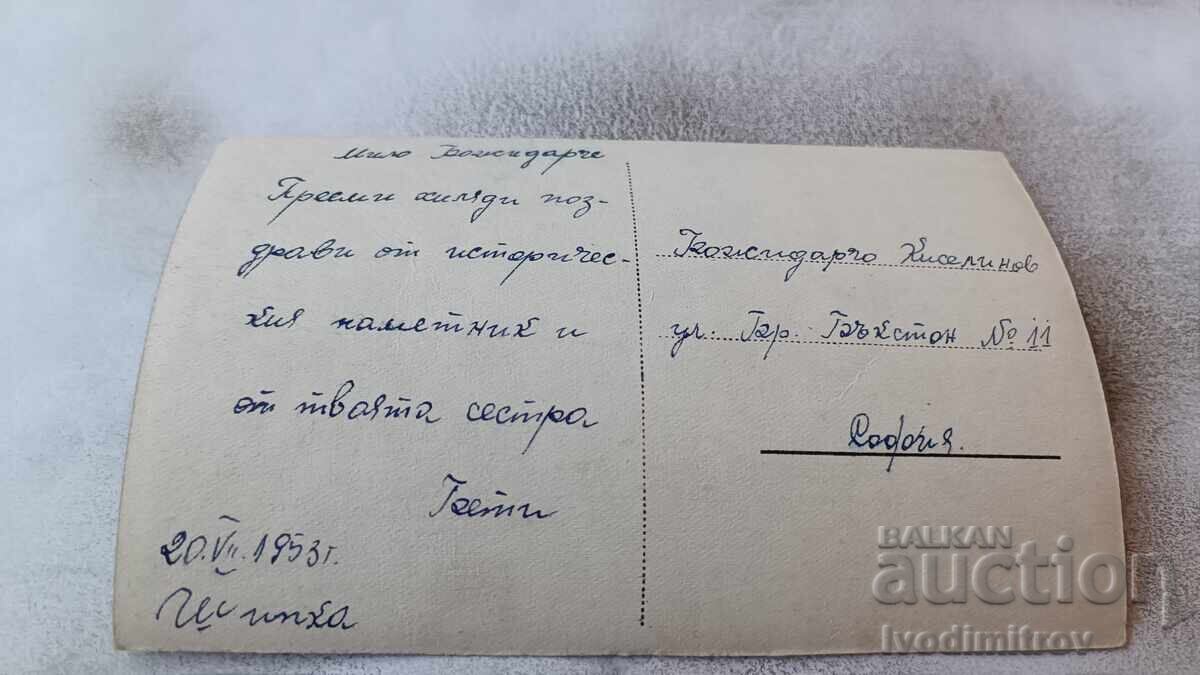 Мило Божидарче
Приеми хиляди поз-
драви от историчес-
кия паметник и
от твоята сестра
Бети
20.VII.1953г.
Шипка
Божидарчо Киселинов
ул. Бр. Бъкстон № 11
София.
BALKAN
auction
Ivodimitrov